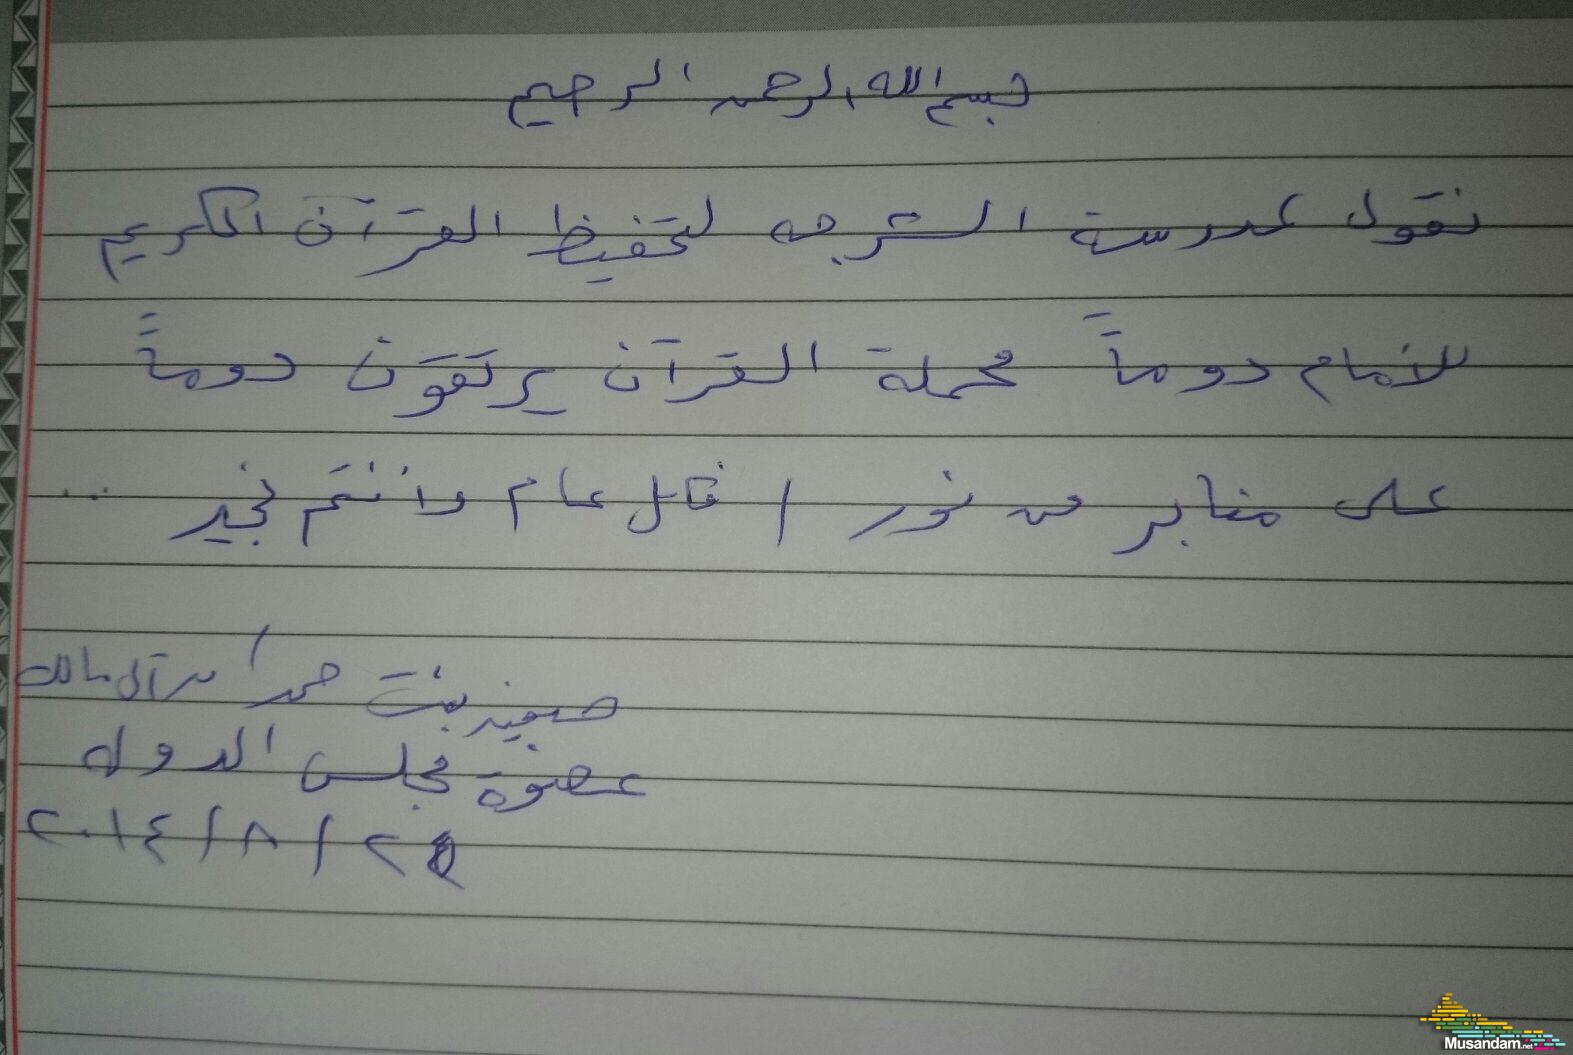 بسم الله الرحمن الرحيم
نقول لمدرسة الشرجه لتحفيظ القرآن الكريم
للأمام دوماً فحملة القرآن يرتقون دوماً
على منابر من نور / فكل عام وانتم بخير ...
بنت حمد أمير آل مالك
عضوة مجلس الدوله
٢٥ / ٨ / ٢٠١٤
Musandam.net